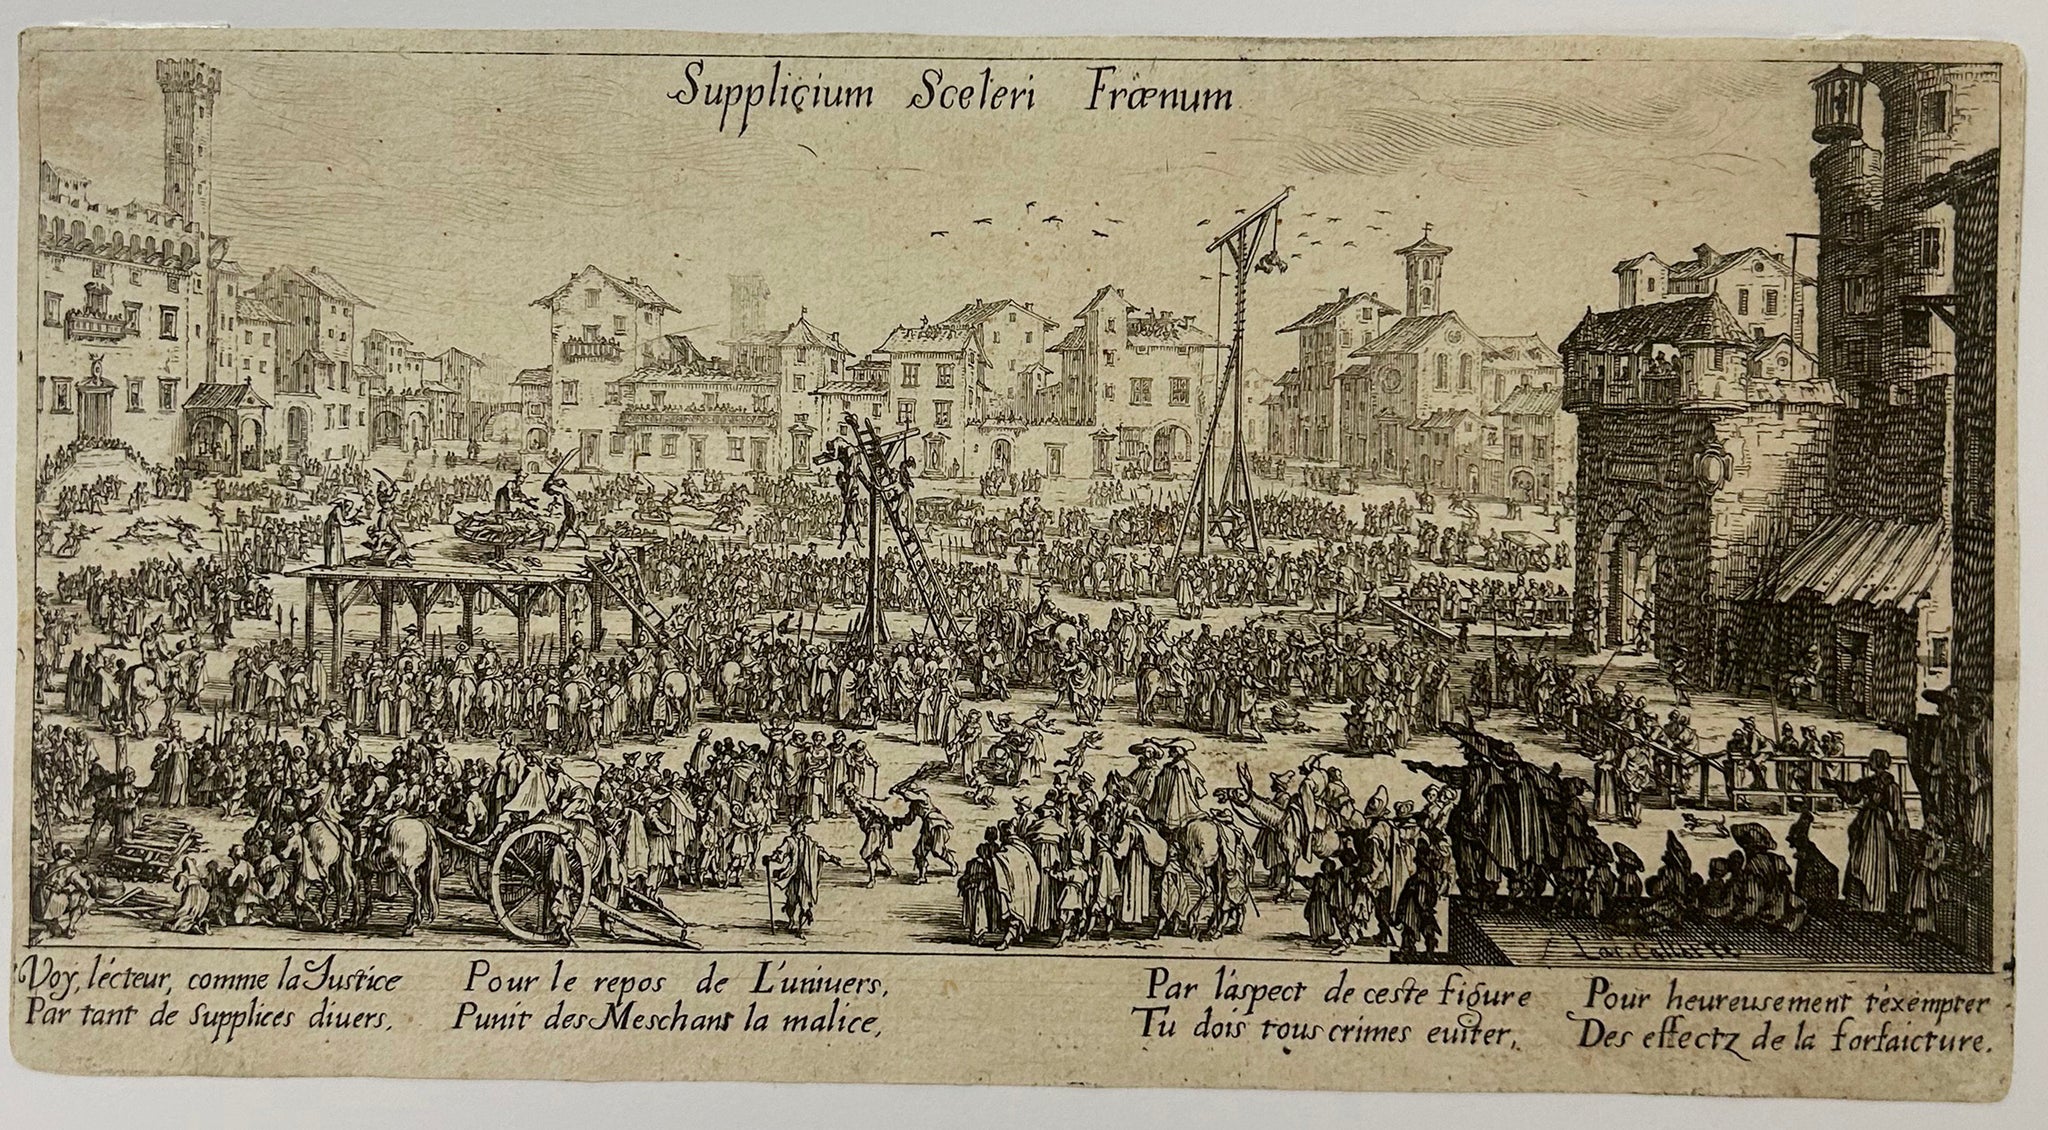 Supplicium Sceleri Frœnum
Voy, lécteur, comme la Justice
Par tant de Supplices diuers,
Pour le repos de L'uniuers,
Punit des Meschans la malice,
Par l'aspect de ceste figure
Tu dois tous crimes euiter,
Pour heureusement t'exempter
Des effectz de la forfaicture.